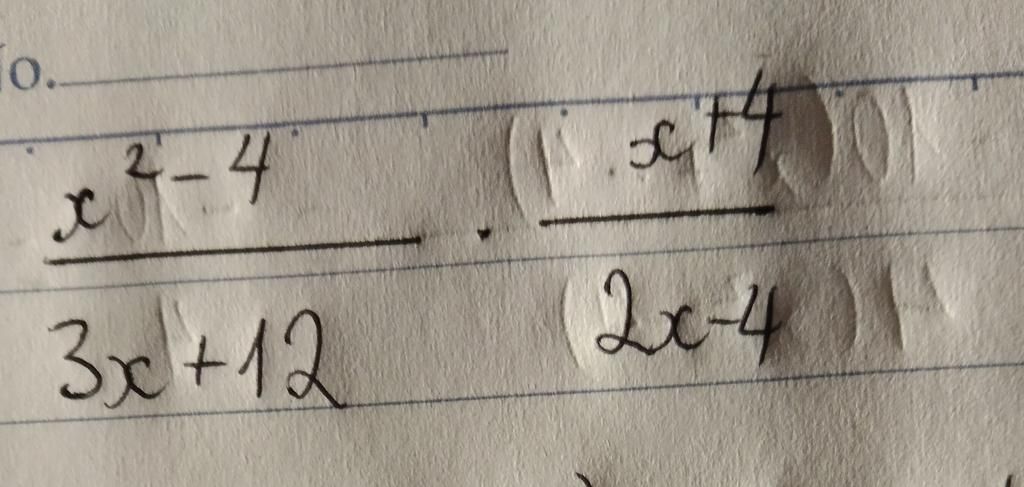 o.
x² - 4 / 3x + 12 · x + 4 / 2x - 4